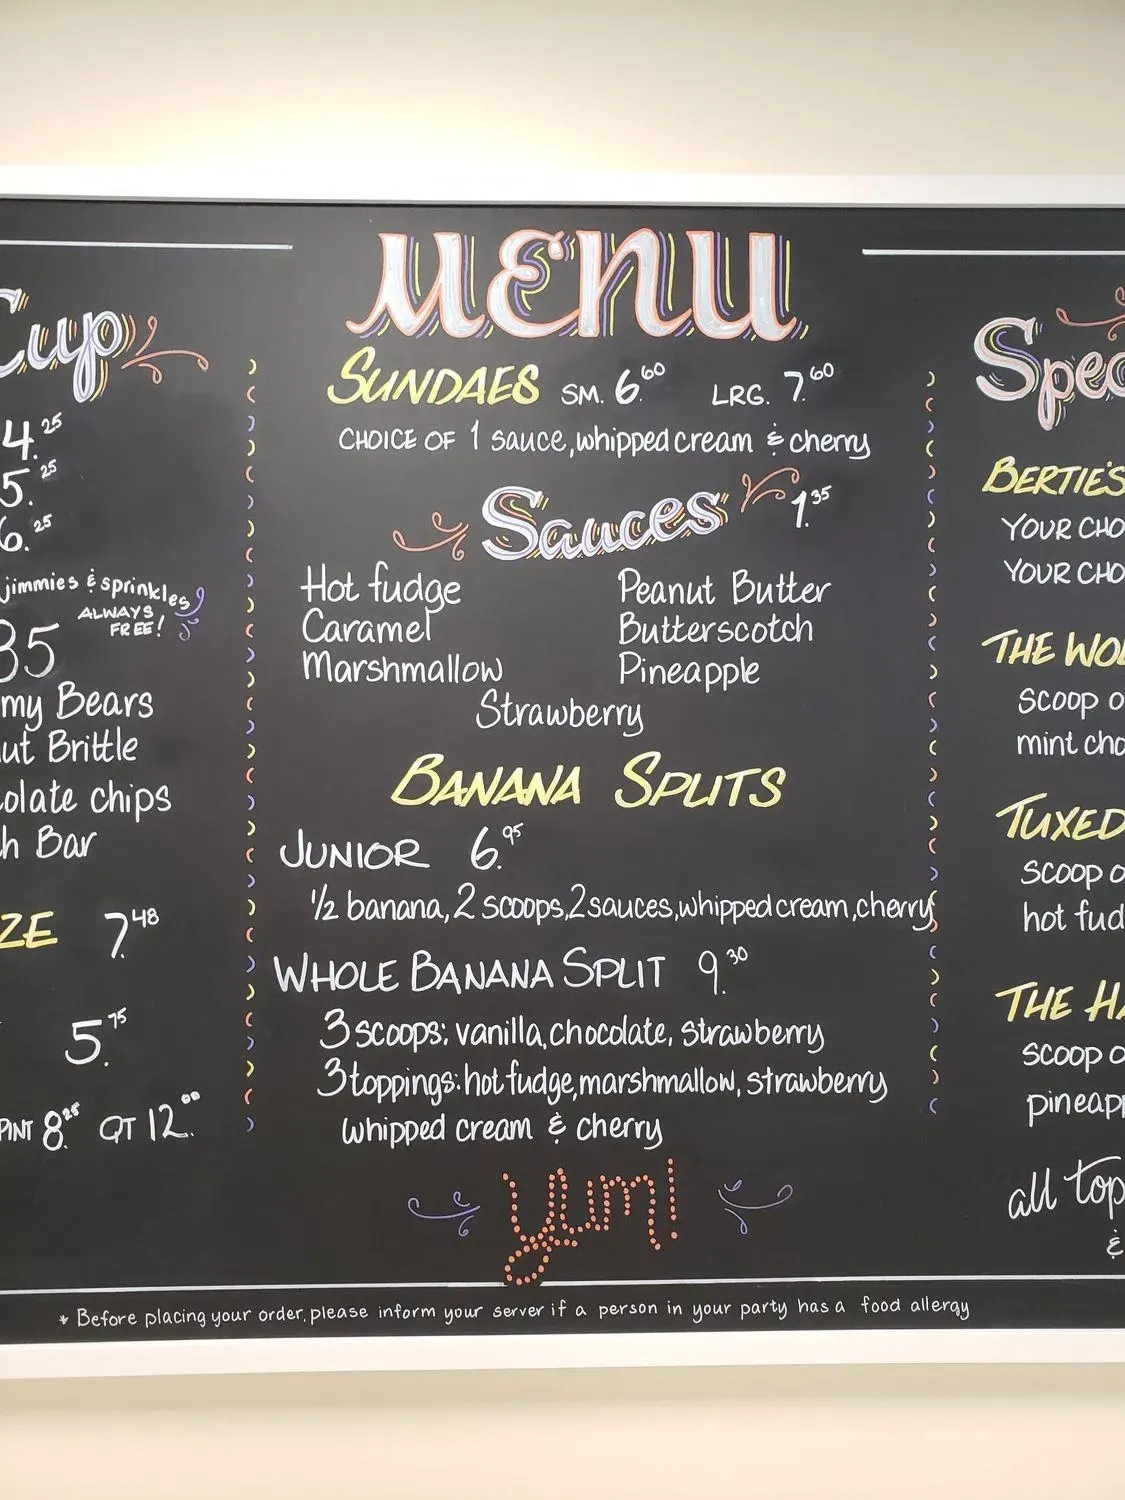 MENU
Cup
4.25
5.25
6.25
jimmies & sprinkles
ALWAYS
FREE!
35
my Bears
ut Brittle
olate chips
h Bar
ZE 7.48
5.75
PINT 8.25 QT 12.00
SUNDAES SM. 6.60 LRG. 7.60
CHOICE OF 1 sauce, whipped cream & cherry
Sauces 1.35
Hot fudge Peanut Butter
Caramel Butterscotch
Marshmallow Pineapple
Strawberry
BANANA SPLITS
JUNIOR 6.95
1/2 banana, 2 scoops, 2 sauces, whipped cream, cherry
WHOLE BANANA SPLIT 9.30
3 scoops: vanilla, chocolate, strawberry
3 toppings: hot fudge, marshmallow, strawberry
whipped cream & cherry
yum!
Spec
BERTIE'S
YOUR CHO
YOUR CHO
THE WO
scoop o
mint cho
TUXED
scoop o
hot fud
THE HA
scoop o
pineapp
all top
&
* Before placing your order, please inform your server if a person in your party has a food allergy